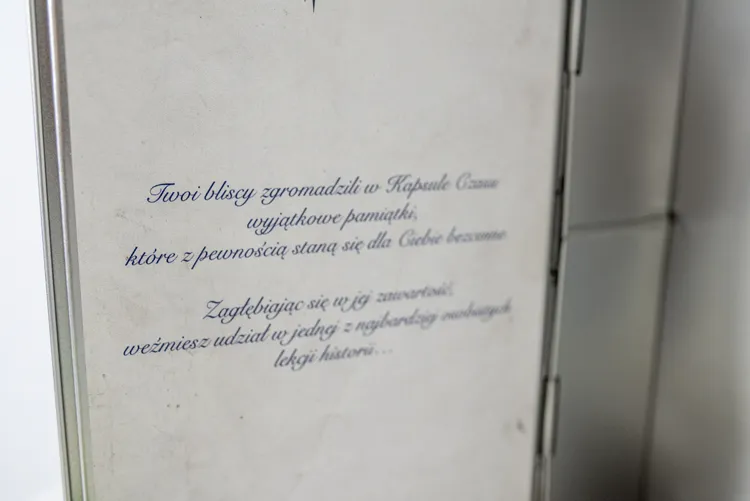 Twoi bliscy zgromadzili w Kapsule Czasu
wyjątkowe pamiątki,
które z pewnością staną się dla Ciebie bezcenne.
Zagłębiając się w jej zawartość,
weźmiesz udział w jednej z najbardziej osobistych
lekcji historii...